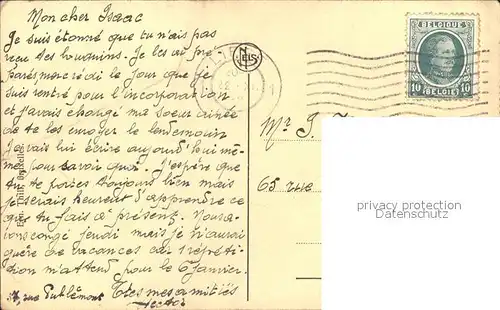 Mon cher Isaac
Je suis étonné que tu n'ais pas
reçu tes bouquins. Je les ai pré-
parés mercredi le jour que je
suis rentré pour l'incorporation
et j'avais chargé ma soeur ainée
de te les envoyer le lendemain
Je vais lui écrire aujourd'hui mê-
me pour savoir quoi. J'espère que
tu te portes toujours bien mais
je serais heureux d'apprendre ce
que tu fais à présent. Nous a-
vons congé jeudi mais je n'aurai
guère de vacances car 1 répéti-
tion m'attend pour le 6 janvier.
rue Publémont Très mes amitiés
NELS
BELGIQUE
10 10
BELGIE
Mr J.
65 rue
PRIVACY PROTECTED
Datenschutz